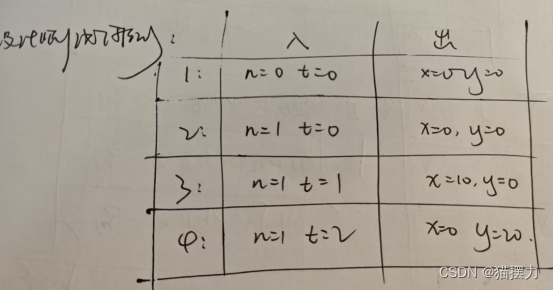 入 出
1: n=0 t=0 x=0 y=0
2: n=1 t=0 x=0, y=0
3: n=1 t=1 x=10, y=0
4: n=1 t=2 x=0 y=20.
CSDN @猫摆力